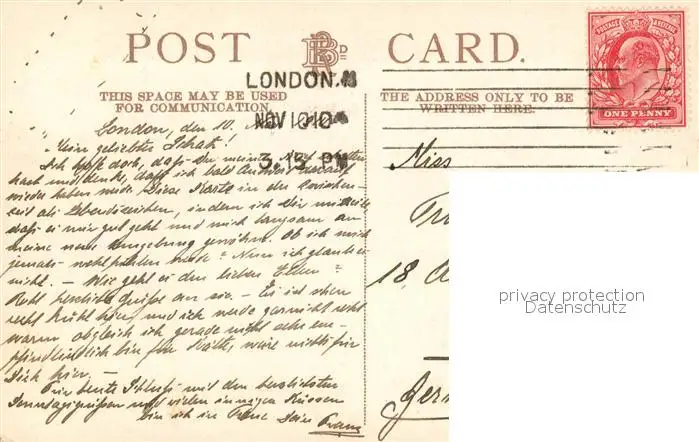 POST CARD.
LONDON.
THIS SPACE MAY BE USED
FOR COMMUNICATION.
THE ADDRESS ONLY TO BE
WRITTEN HERE.
NOV 10 10
3.15 PM
POSTAGE REVENUE
ONE PENNY
London, den 10. Nov.
Meine geliebter Schatz!
Ich hoffe doch, daß Du meine
nach und denke, daß ich bald Antwort darauf
wieder haben werde. Diese Karte in der Zwischen-
zeit als Lebenszeichen, indem ich Dir mitteile
daß es mir gut geht und mich langsam an
meine neue Umgebung gewöhne. Ob ich mich
jemals wohl fühlen werde? Nun ich glaube
nicht. – Wie geht es den lieben Eltern?
Recht herzliche Grüße an sie. – Es ist schon
recht kühl hier, und ich werde garnicht recht
warm obgleich ich gerade nicht sehr em-
pfindlich bin für Kälte, weil nichts für
Dich hier. –
Für heute Schluß mit den herzlichsten
Sonntagsgrüßen und vielen innigen Küssen
bin ich in Treue Dein Franz
Miss
18,
Ger
privacy protection
Datenschutz